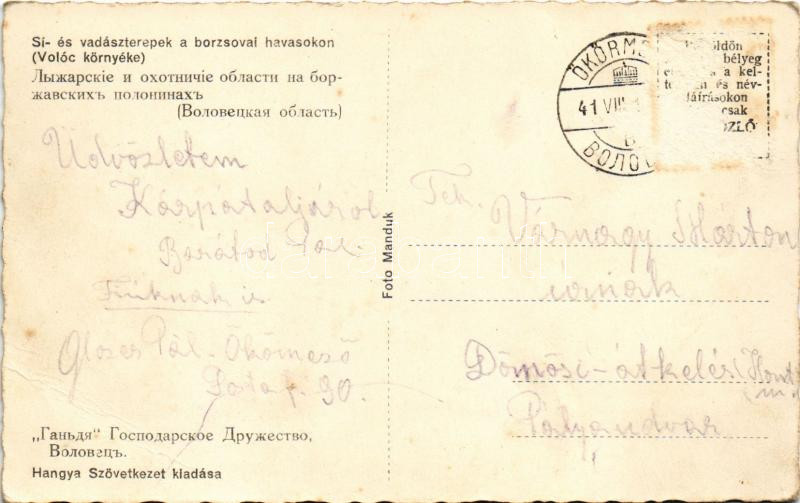 Sí- és vadászterepek a borzsovai havasokon
(Volóc környéke)
Лыжарскіе и охотничіе области на бор-
жавскихъ полонинахъ
(Воловецкая область)
Üdvözletem
Kárpátaljáról
Barátod Pál.
Fiúknak is
Pál. Ökörmező
Posta f. 30.
„Ганьдя" Господарское Дружество,
Воловецъ.
Hangya Szövetkezet kiadása
Foto Manduk
ÖKÖRM
41 VIII
ВОЛО
öldön
bélyeg
a kel-
és név-
láírásokon
csak
ZLŐ
Tek.
Várnagy Márton
úrnak
Dömösi-átkelés (Hont
m.
Pályaudvar